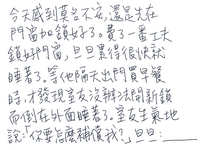 今天感到莫名不安,還是先在
門窗加鎖好了。費了一番工夫
鎖好門窗,旦旦累得很快就
睡著了。等他隔天出門買早餐
時,才發現室友沒辦法開新鎖
而倒在外面睡著了。室友生氣地
說:「你要怎麼補償我?」旦旦: